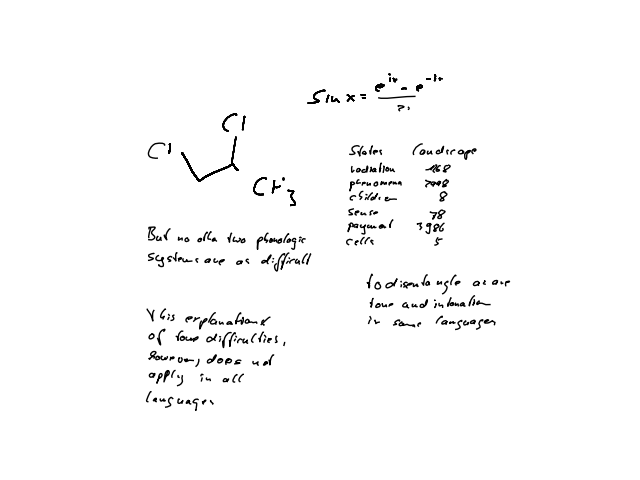 sin x = (e^ix - e^-ix) / 2i
Cl
Cl
CH3
States Landscape
radiation 468
phenomena 7448
children 8
sense 78
payment 3986
cells 5
But no other two phonologic
systems are as difficult
to disentangle as are
tone and intonation
in some languages
This explanation of
of tone difficulties,
however, does not
apply in all
languages